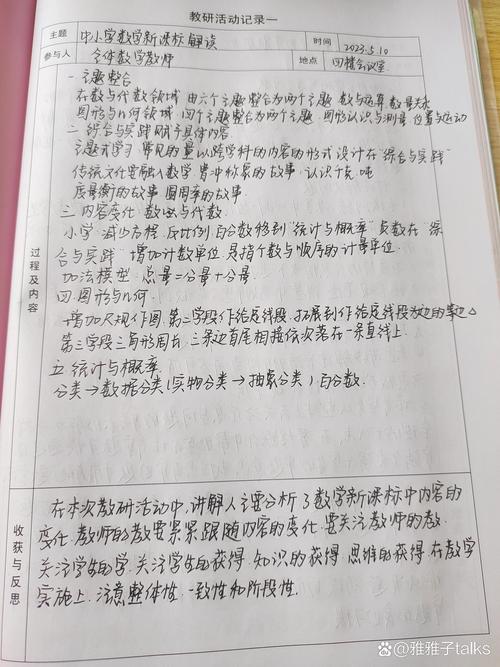 教研活动记录一
主题 中小学数学新课标解读 时间 2023.5.10
参与人 全体数学教师 地点 四楼会议室
过程及内容
一 主题整合
在数与代数领域 由六个主题整合为两个主题 数与运算 数量关系
图形与几何领域 四个主题整合为两个主题 图形认识与测量 位置与运动
二 综合与实践 赋予具体内容
主题式学习 常见的量以跨学科的内容的形式 设计在“综合与实践”
传统文化要融入数学 曹冲称象的故事 认识千克.吨
度量衡的故事 圆周率的故事
三 内容变化 数与代数
小学 减少方程 反比例 百分数移到“统计与概率” 负数在“综
合与实践” 增加计数单位 是指个数与顺序的计量单位.
加法模型 总量=分量+分量.
四.图形与几何.
增加尺规作图.第二学段作给定线段.拓展到作给定线段为边的等边△
第三学段三角形周长 三条边首尾相接依次落在一条直线上.
五.统计与概率.
分类→数据分类(实物分类→抽象分类)百分数.
收获与反思
在本次教研活动中.讲解人主要分析了数学新课标中内容的
变化.教师的教要紧紧跟随内容的变化.要关注教师的教.
关注学生的学.关注学生的获得.知识的获得.思维的获得.在教学
实施上.注意整体性.一致性和阶段性.
@雅雅子talks